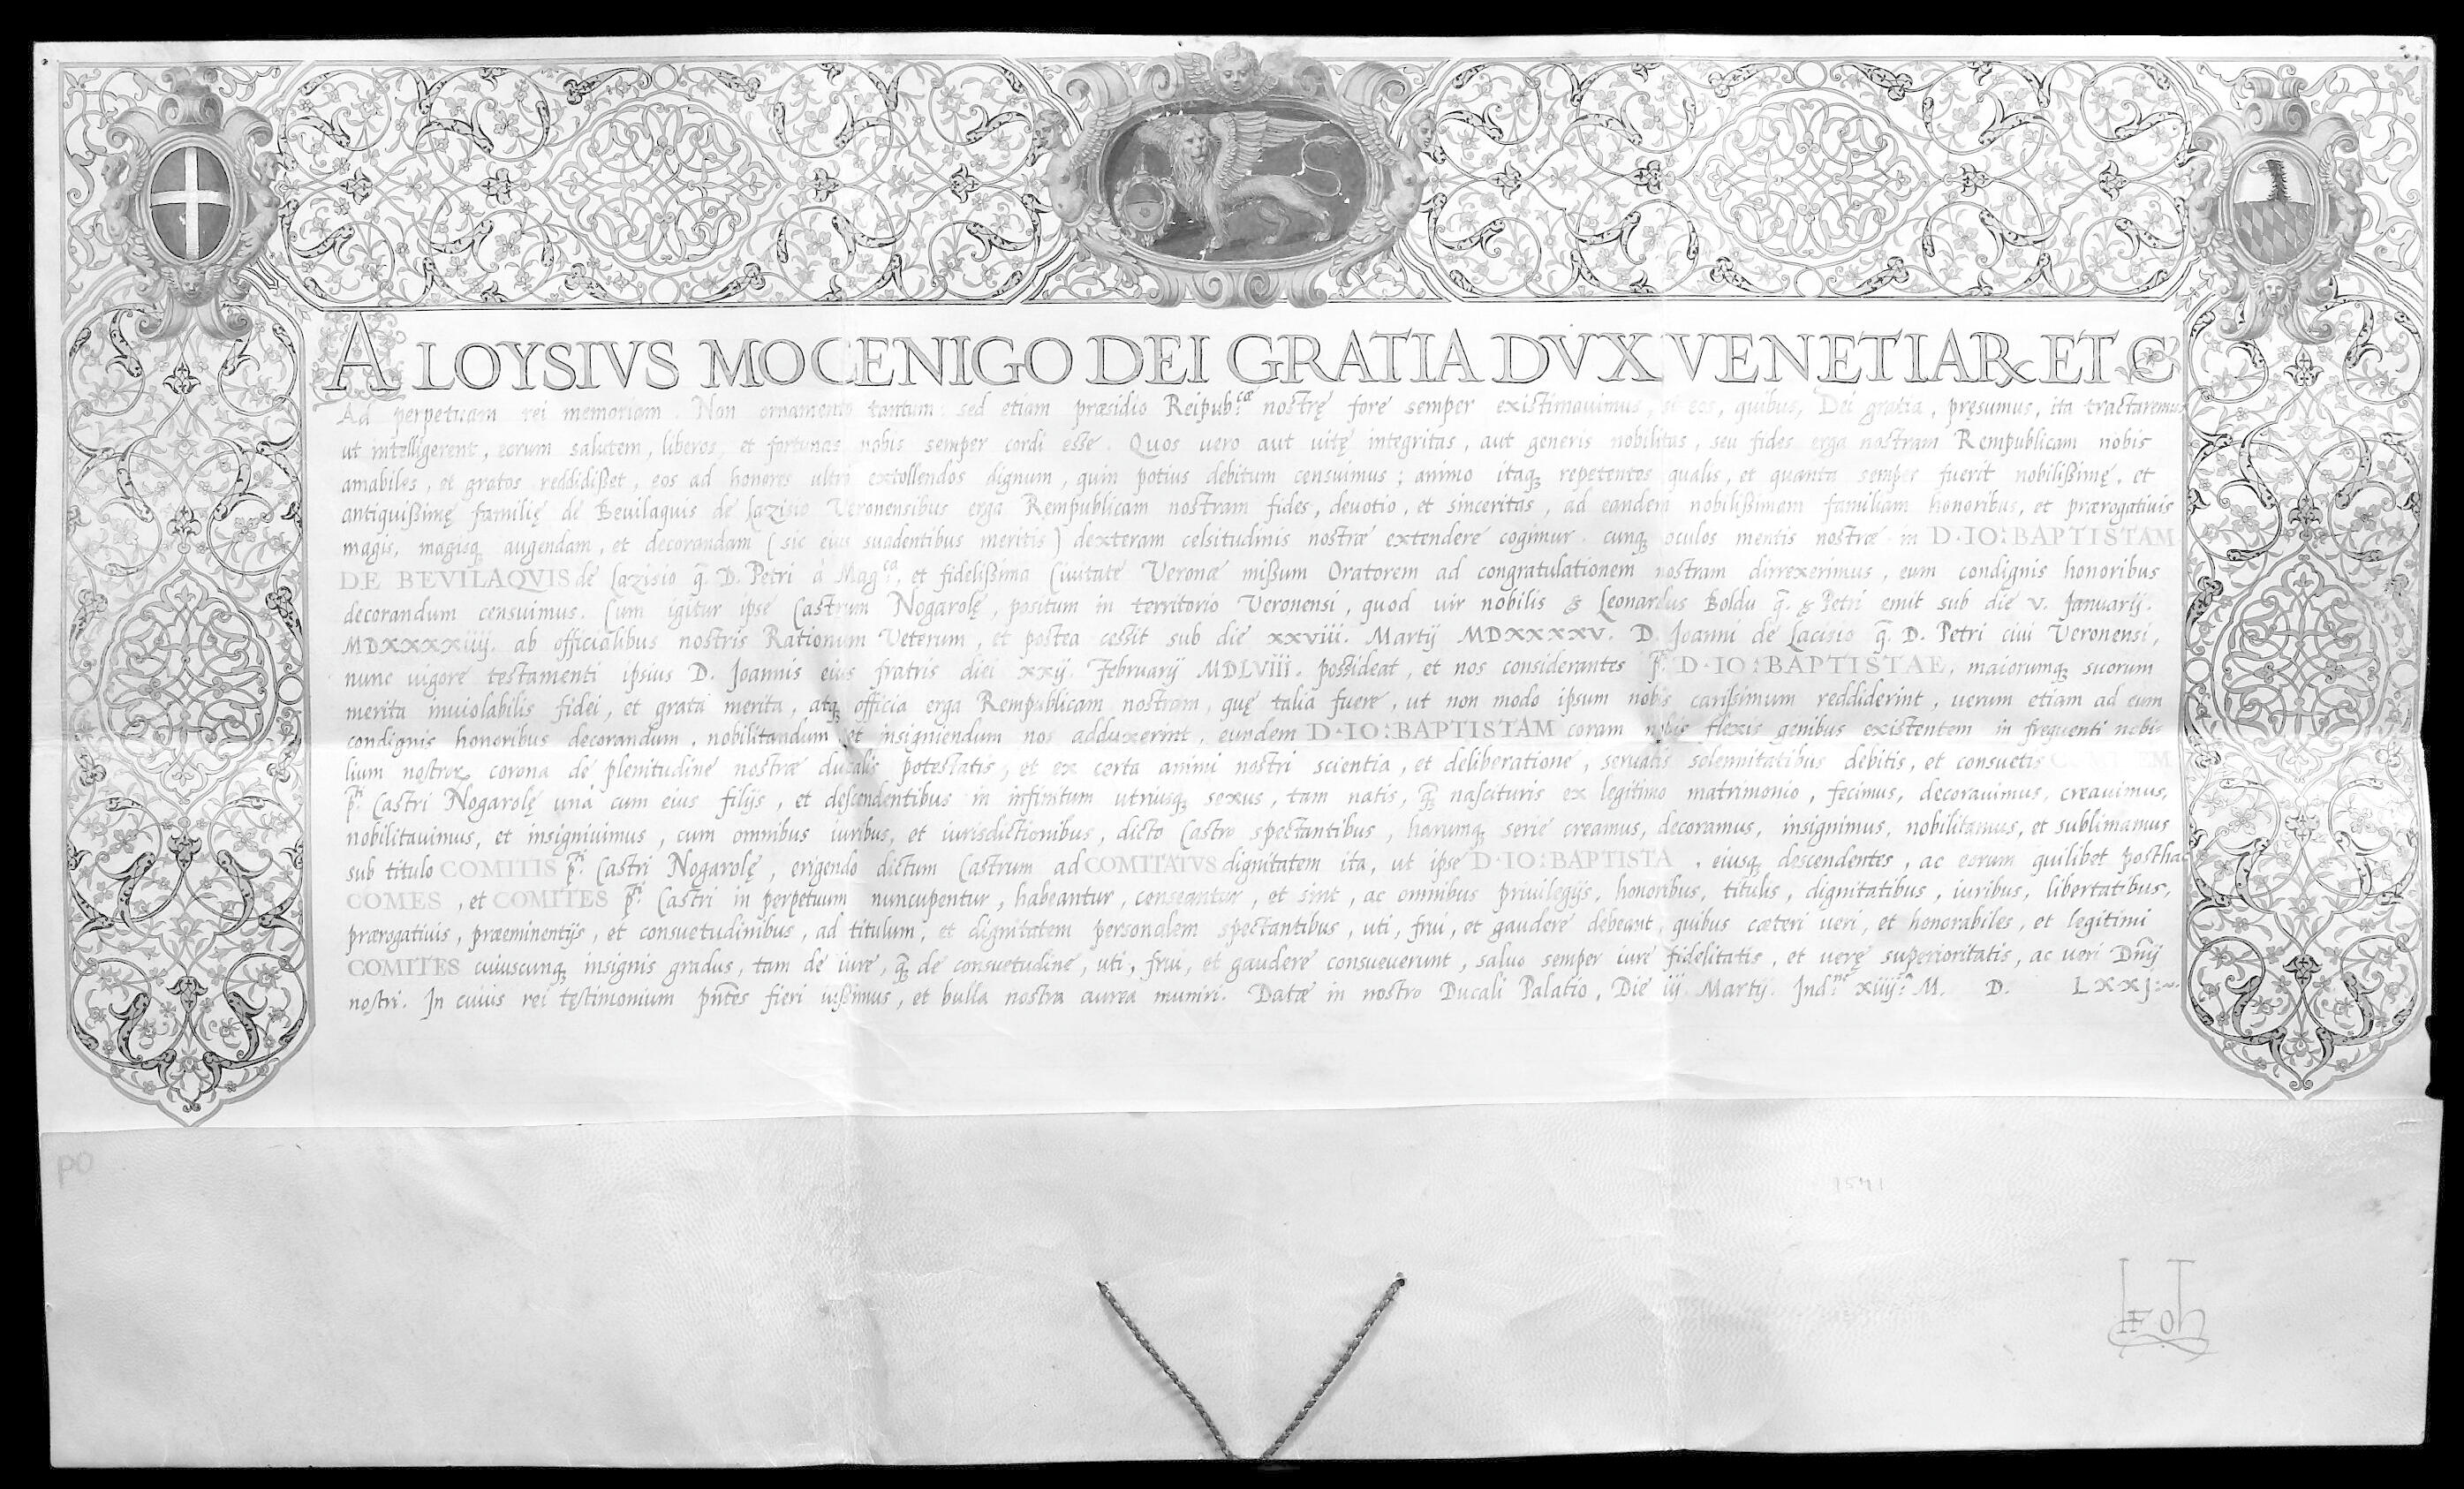 ALOYSIVS MOCENIGO DEI GRATIA DVX VENETIAR ET C
Ad perpetuam rei memoriam. Non ornamento tantum sed etiam præsidio Reipub.cæ nostrę fore semper existimauimus, si eos, quibus, Dei gratia, pręsumus, ita tractaremus
ut intelligerent, eorum salutem, liberos, et fortunas nobis semper cordi esse. Quos uero aut uitę integritas, aut generis nobilitas, seu fides erga nostram Rempublicam nobis
amabiles, et gratos reddidißet, eos ad honores ultro extollendos dignum, quin potius debitum censuimus; animo itaq; repetentes qualis, et quanta semper fuerit nobilißimę, et
antiquißimę familię de Beuilaquis de Lazisio Veronensibus erga Rempublicam nostram fides, deuotio, et sinceritas, ad eandem nobilißimam familiam honoribus, et prærogatiuis
magis, magisq; augendam, et decorandam (sic eius suadentibus meritis) dexteram celsitudinis nostræ extendere cogimur. cunq; oculos mentis nostræ in D·IO: BAPTISTAM
DE BEVILAQVIS de Lazisio q̄. D. Petri à Mag.ca, et fidelißima Ciuitate Veronæ mißum Oratorem ad congratulationem nostram dirrexerimus, eum condignis honoribus
decorandum censuimus. Cum igitur ipse Castrum Nogarolę, positum in territorio Veronensi, quod uir nobilis & Leonardus Boldu q̄. & Petri emit sub die v. Januarij.
MDXXXXiiij. ab officialibus nostris Rationum Veterum, et postea ceßit sub die xxviii. Martij MDXXXXV. D. Joanni de Lacisio q̄. D. Petri ciui Veronensi,
nunc uigore testamenti ipsius D. Joannis eius fratris diei xxij. Februarij MDLVIII. poßideat, et nos considerantes p̄.ti D·IO: BAPTISTAE, maiorumq; suorum
merita inuiolabilis fidei, et grata merita, atq; officia erga Rempublicam nostram, quę talia fuere, ut non modo ipsum nobis carißimum reddiderint, uerum etiam ad eum
condignis honoribus decorandum, nobilitandum, et insigniendum nos adduxerint, eundem D·IO: BAPTISTAM coram nobis flexis genibus existentem in frequenti nobi-
lium nostror̄ corona de plenitudine nostræ ducalis potestatis, et ex certa animi nostri scientia, et deliberatione, seruatis solennitatibus debitis, et consuetis COMITEM
p̄.ti Castri Nogarolę unà cum eius filijs, et descendentibus in infinitum utriusq; sexus, tam natis, q̄; nascituris ex legitimo matrimonio, fecimus, decorauimus, creauimus,
nobilitauimus, et insigniuimus, cum omnibus iuribus, et iurisdictionibus, dicto Castro spectantibus, harumq; serie creamus, decoramus, insignimus, nobilitamus, et sublimamus
sub titulo COMITIS p̄.ti Castri Nogarolę, erigendo dictum Castrum ad COMITATVS dignitatem ita, ut ipse D·IO: BAPTISTA, eiusq; descendentes, ac eorum quilibet posthac
COMES, et COMITES p̄.ti Castri in perpetuum nuncupentur, habeantur, censeantur, et sint, ac omnibus priuilegijs, honoribus, titulis, dignitatibus, iuribus, libertatibus,
prærogatiuis, præeminentijs, et consuetudinibus, ad titulum, et dignitatem personalem spectantibus, uti, frui, et gaudere debeant, quibus cæteri ueri, et honorabiles, et legitimi
COMITES cuiuscunq; insignis gradus, tam de iure, q̄; de consuetudine, uti, frui, et gaudere consueuerunt, saluo semper iure fidelitatis, et uerę superioritatis, ac ueri Dn̄ij
nostri. In cuius rei testimonium pn̄tes fieri iußimus, et bulla nostra aurea muniri. Datæ in nostro Ducali Palatio, Die iij. Martij. Ind.ne xiiij.a M. D. LXXJ:~
PO
1571